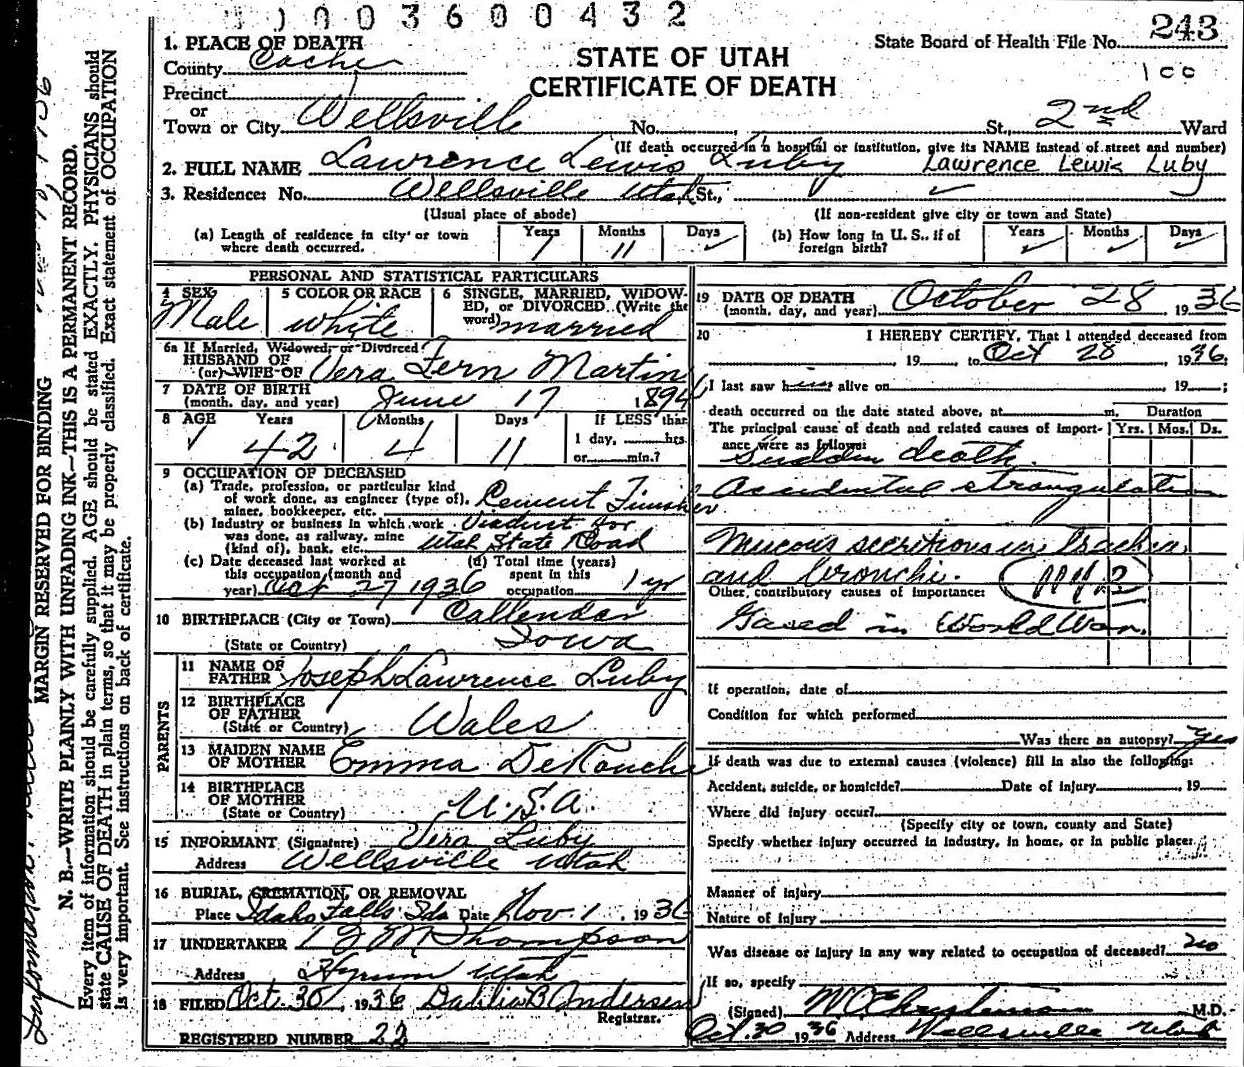 0003600432
243
State Board of Health File No.
100
1. PLACE OF DEATH
STATE OF UTAH
CERTIFICATE OF DEATH
County Cache
Precinct
or
Town or City Wellsville No. , St., 2nd Ward
(If death occurred in a hospital or institution, give its NAME instead of street and number)
2. FULL NAME Lawrence Lewis Luby Lawrence Lewis Luby
3. Residence: No. Wellsville Utah St.,
(Usual place of abode) (If non-resident give city or town and State)
(a) Length of residence in city or town where death occurred. Years 7 Months 11 Days ✓
(b) How long in U. S., if of foreign birth? Years ✓ Months ✓ Days ✓
PERSONAL AND STATISTICAL PARTICULARS
4 SEX Male
5 COLOR OR RACE white
6 SINGLE, MARRIED, WIDOWED, or DIVORCED (Write the word) married
6a If Married, Widowed, or Divorced
HUSBAND OF
(or) WIFE OF Vera Fern Martin
7 DATE OF BIRTH
(month, day, and year) June 17 1894
8 AGE Years 42 Months 4 Days 11 If LESS than
1 day, hrs.
or min.?
9 OCCUPATION OF DECEASED
(a) Trade, profession, or particular kind
of work done, as engineer (type of),
miner, bookkeeper, etc. Cement Finisher
(b) Industry or business in which work
was done, as railway, mine
(kind of), bank, etc. Viaduct for
Utah State Road
(c) Date deceased last worked at
this occupation (month and
year) Oct 27 1936
(d) Total time (years)
spent in this
occupation 1 yr
10 BIRTHPLACE (City or Town) Callendar
(State or Country) Iowa
PARENTS
11 NAME OF
FATHER Joseph Lawrence Luby
12 BIRTHPLACE
OF FATHER
(State or Country) Wales
13 MAIDEN NAME
OF MOTHER Emma DeRouche
14 BIRTHPLACE
OF MOTHER
(State or Country) U.S.A.
15 INFORMANT (Signature) Vera Luby
Address Wellsville Utah
16 BURIAL, CREMATION, OR REMOVAL
Place Idaho Falls Ida Date Nov. 1, 1936
17 UNDERTAKER Thompson
Address Hyrum Utah
18 FILED Oct. 30, 1936 Dahlia B Andersen
Registrar.
REGISTERED NUMBER 22
19 DATE OF DEATH
(month, day, and year) October 28, 1936
20 I HEREBY CERTIFY, That I attended deceased from
, 19 to Oct 28, 1936,
I last saw h alive on , 19 ;
death occurred on the date stated above, at m.
Duration
Yrs. Mos. Ds.
The principal cause of death and related causes of importance were as follows:
Sudden death.
Accidental strangulation
Mucous secritions in Trachea
and bronchi.
Other contributory causes of importance:
Gased in World War.
If operation, date of
Condition for which performed
Was there an autopsy? Yes
If death was due to external causes (violence) fill in also the following:
Accident, suicide, or homicide? Date of injury , 19
Where did injury occur?
(Specify city or town, county and State)
Specify whether injury occurred in industry, in home, or in public place:
Manner of injury
Nature of injury
Was disease or injury in any way related to occupation of deceased? no
If so, specify
(Signed) M.D.
Oct. 30 1936 Address Wellsville Utah
MARGIN RESERVED FOR BINDING
N. B.—WRITE PLAINLY WITH UNFADING INK—THIS IS A PERMANENT RECORD.
Every item of information should be carefully supplied. AGE should be stated EXACTLY. PHYSICIANS should
state CAUSE OF DEATH in plain terms, so that it may be properly classified. Exact statement of OCCUPATION
is very important. See instructions on back of certificate.